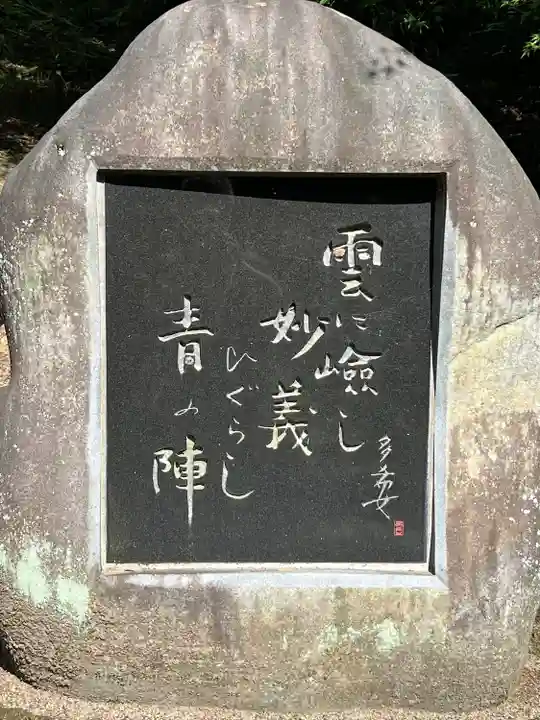 雲に嶮し
妙義
ひぐらし
青の陣
多希女